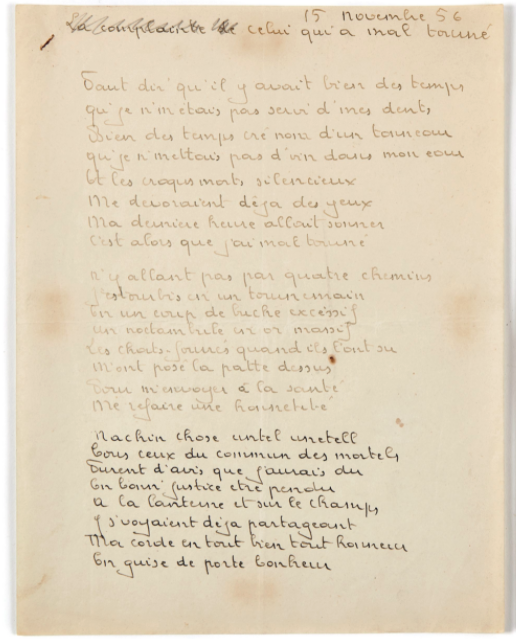 15 Novembre 56
La complainte de celui qui a mal tourné
Faut dir' qu'il y avait bien des temps
qu'je n'm'étais pas servi d'mes dents
Bien des temps cré nom d'un tonneau
qu'je n'mettais pas d'vin dans mon eau
Et les croqu'morts, silencieux
Me dévoraient déja des yeux
Ma dernière heure allait sonner
C'est alors que j'ai mal tourné
N'y allant pas par quatre chemins
J'estourbis en un tournemain
En un coup de buche excessif
un noctambule en or massif
Les chats-fourrés quand ils l'ont su
M'ont posé la patte dessus
Pour m'envoyer à la santé
Me refaire une honnêteté
Machin chose untel unetell
Tous ceux du commun des mortels
Furent d'avis que j'aurais du
En bonn' justice etre pendu
A la lanterne et sur le champs
Y s'voyaient déja partageant
Ma corde en tout bien tout honneur
En guise de porte bonheur